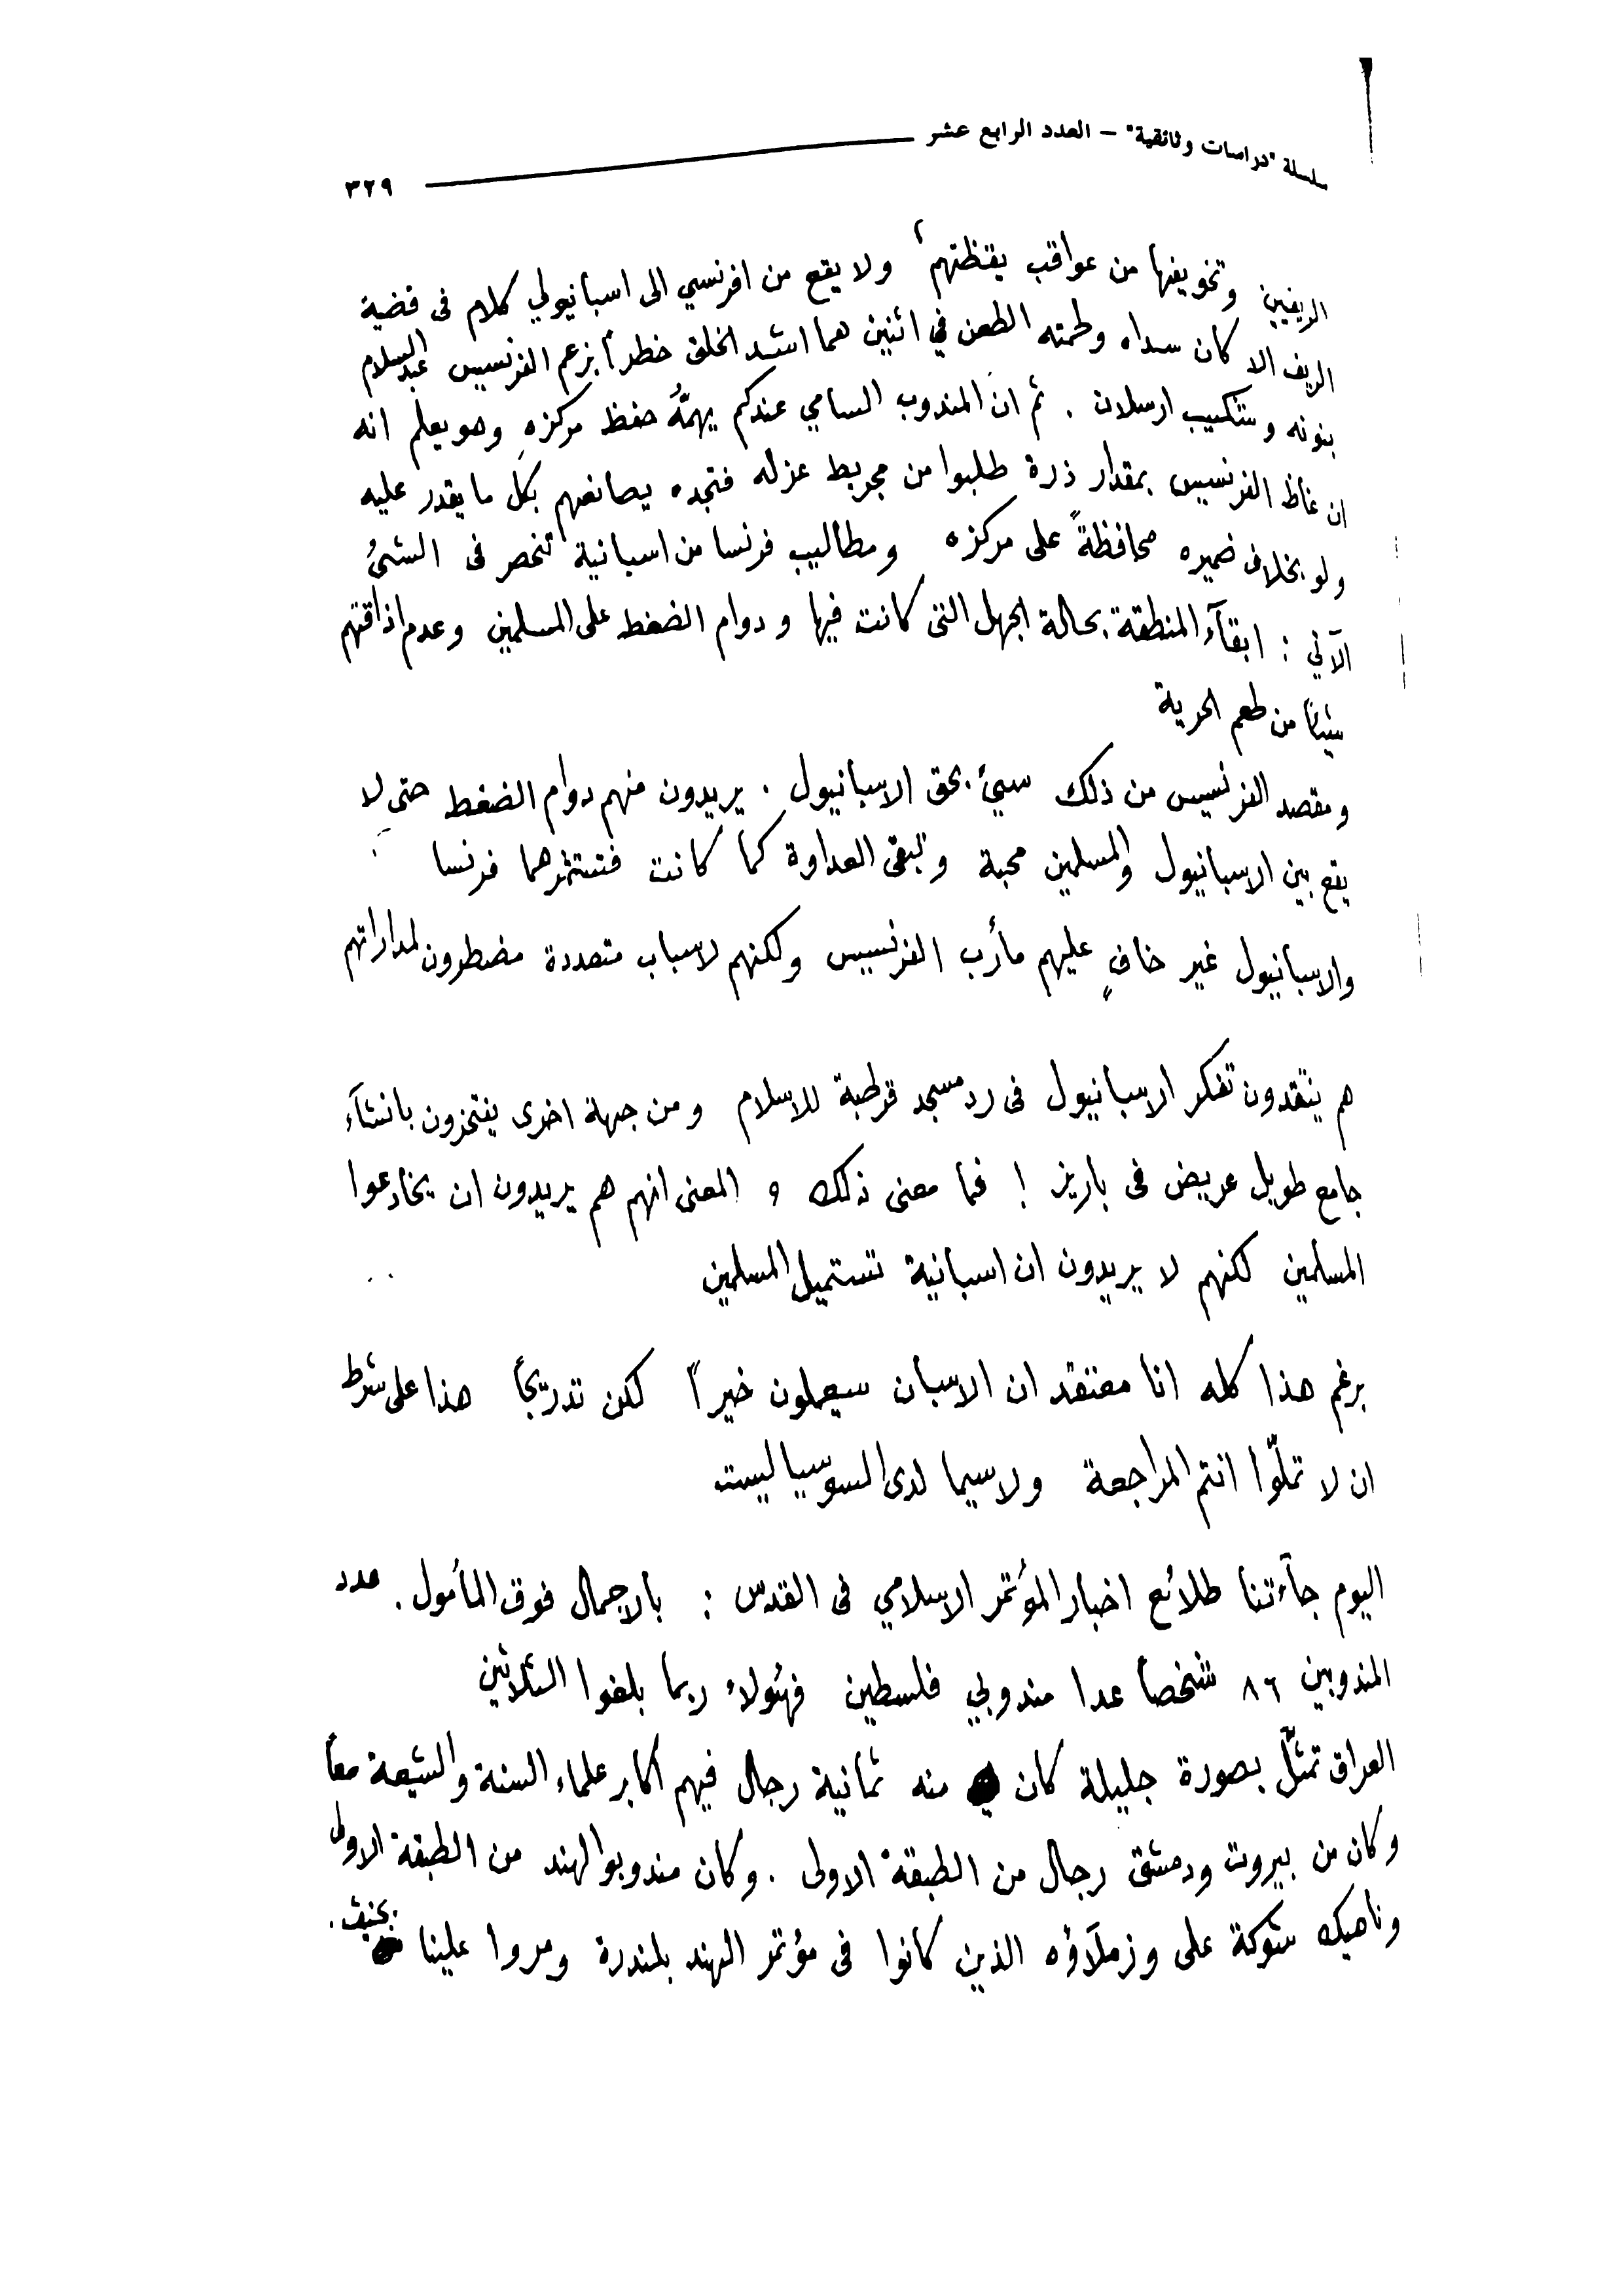 سلسلة "دراسات وثائقية" – العدد الرابع عشر
٣٢٩
الريفيين وتخويفها من عواقب يقظتهم، ولا يقع من افرنسي الى اسبانيولي كلام فى قضية
الريف الا كان سداه ولحمته الطعن في اثنين هما اشد الخلق خطراً بزعم الفرنسيس عبد السلام
بنونه وشكيب ارسلان . ثم ان المندوب السامي عندكم يهمّهُ حفظ مركزه وهو يعلم انه
ان غاظ الفرنسيس بمقدار ذرة طلبوا من مجريط عزله فتجده يصانعهم بكل ما يقدر عليه
ولو بخلاف ضميره محافظةً على مركزه ومطاليب فرنسا من اسبانية تنحصر فى الشئ
الآتي : ابقآء المنطقة بحالة الجهل التى كانت فيها ودوام الضغط على المسلمين وعدم اذاقتهم
شيئاً من طعم الحرية
ومقصد الفرنسيس من ذلك سيئ بحق الاسبانيول . يريدون منهم دوام الضغط حتى لا
يقع بين الاسبانيول والمسلمين محبة وتبقى العداوة كما كانت فتستثمرهما فرنسا
والاسبانيول غير خافٍ عليهم مأرب الفرنسيس ولكنهم لاسباب متعددة مضطرون لمداراتهم
هم ينتقدون تفكر الاسبانيول فى رد مسجد قرطبة للاسلام ومن جهة اخرى يفتخرون بانشآء
جامع طويل عريض فى باريز ! فما معنى ذلك ؟ المعنى انهم هم يريدون ان يخادعوا
المسلمين لكنهم لا يريدون ان اسبانية تستميل المسلمين
برغم هذا كله انا معتقد ان الاسبان سيعملون خيراً لكن تدريجاً هذا على شرط
ان لا تملّوا انتم المراجعة ولا سيما لدى السوسياليست
اليوم جآءتنا طلائع اخبار المؤتمر الاسلامي فى القدس : بالاجمال فوق المأمول . عدد
المندوبين ٨٦ شخصاً عدا مندوبي فلسطين فهؤلاء ربما بلغوا الثلاثين
العراق تمثّل بصورة جليلة كان منه ثمانية رجال فيهم اكابر علماء السنة والشيعة معاً
وكان من بيروت ودمشق رجال من الطبقة الاولى . وكان مندوبوا الهند من الطبقة الاولى
وناهيك شوكة على وزملآؤه الذين كانوا فى مؤتمر الهند بلندرة ومروا علينا بجنيف .